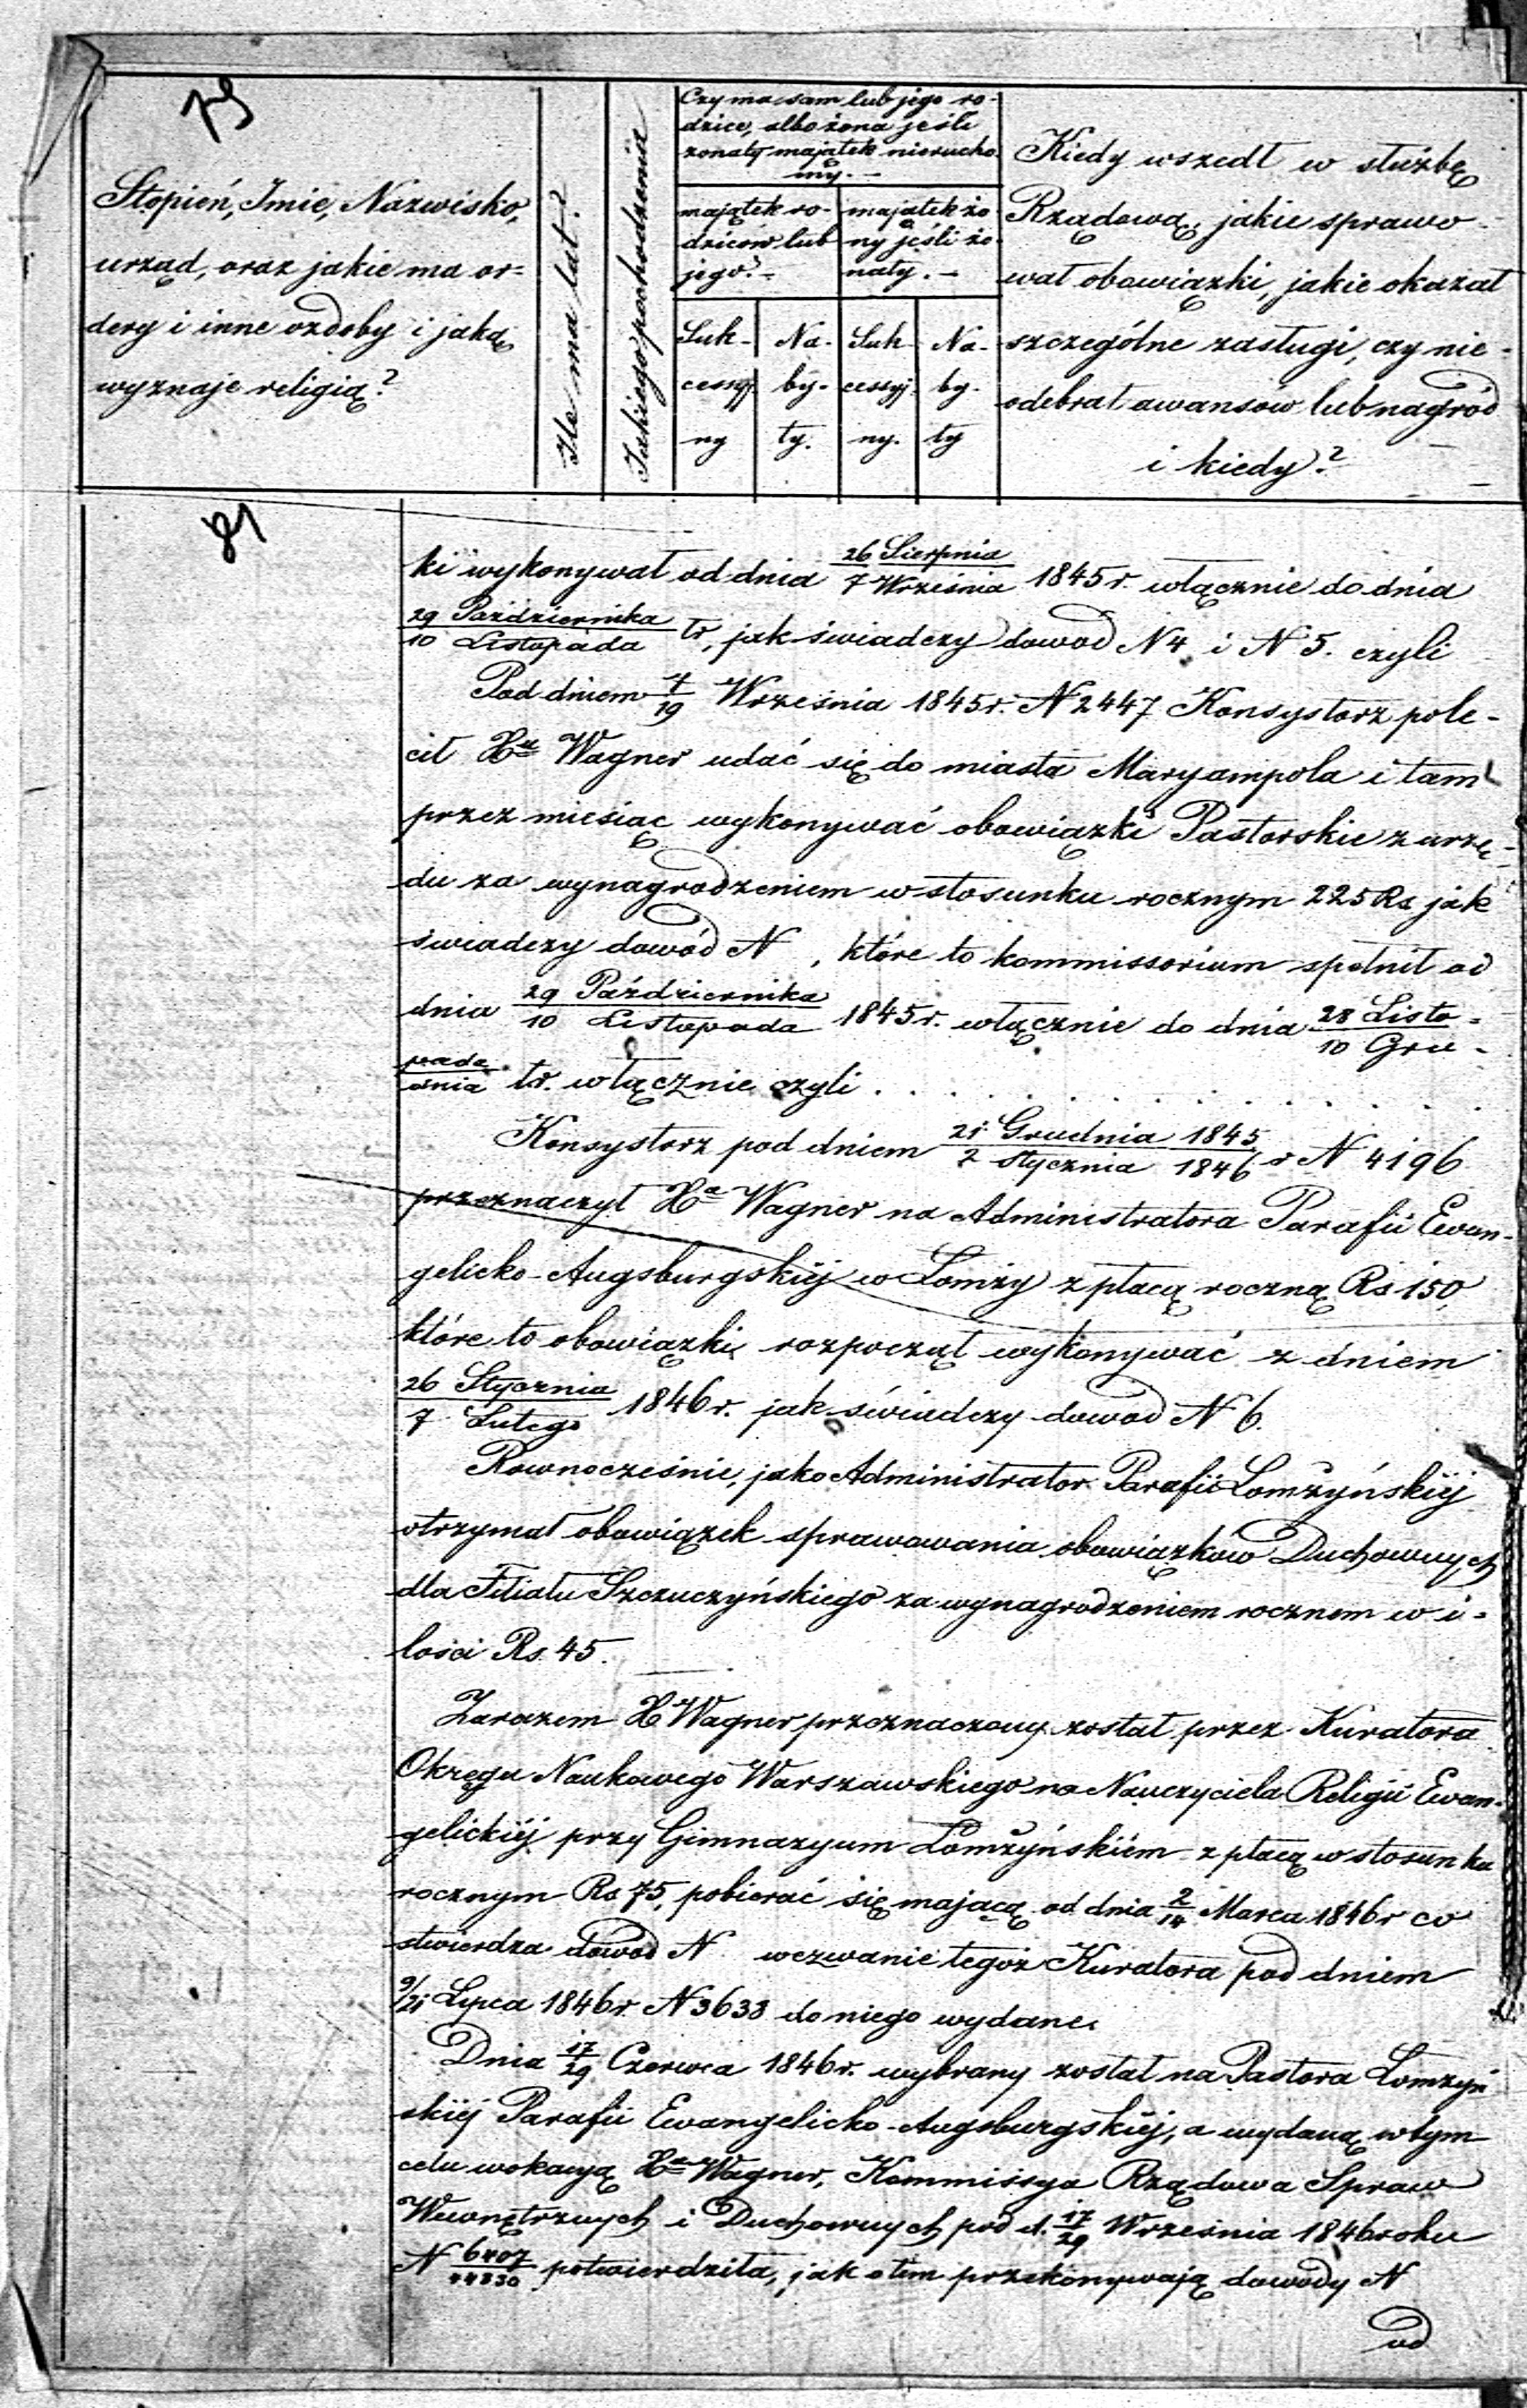 75
Stopień, Imie, Nazwisko,
urząd, oraz jakie ma or=
dery i inne ozdoby i jaką
wyznaje religią?
Ile ma lat?
Jakiego pochodzenia
Czy ma sam lub jego ro-
dzice, albo żona jeśli
żonaty majątek nierucho-
my. -
majątek ro-
dziców lub
jego? -
majątek żo
ny jeśli żo-
naty. -
Suk-
cessyj
ny
Na-
by-
ty.
Suk-
cessyj-
ny.
Na-
by-
ty
Kiedy wszedł w służbę
Rządową, jakie sprawo-
wał obowiązki, jakie okazał
szczególne zasługi, czy nie-
odebrał awansów lub nagród
i kiedy?
81
ki wykonywał od dnia 26 Sierpnia / 7 Września 1845 r. włącznie do dnia
29 Października / 10 Listopada tr, jak świadczy dowod N 4 i N 5. czyli
Pod dniem 7/19 Września 1845 r. N 2447 Konsystorz pole-
cił Xu Wagner udać się do miasta Maryampola i tam
przez miesiąc wykonywać obowiązki Pastorskie z urzę-
du za wynagrodzeniem w stosunku rocznym 225 Rs jak
świadczy dowód N , które to kommissorium spełnił od
dnia 29 Października / 10 Listopada 1845 r. włącznie do dnia 28 Listo- / 10 Gru-
pada / dnia tr. włącznie czyli . . . . . . . . . .
Konsystorz pod dniem 21 Grudnia 1845 / 2 Stycznia 1846 r N 4196
przeznaczył Xa Wagner na Administratora Parafii Ewan-
gelicko-Augsburgskiéj w Łomży z płacą roczną Rs 150,
które to obowiązki rozpoczął wykonywać z dniem
26 Stycznia / 7 Lutego 1846 r. jak świadczy dowod N 6.
Rownocześnie, jako Administrator Parafii Łomżyńskiéj
otrzymał obowiązek sprawowania obowiązków Duchownych
dla Filiału Szczuczyńskiego za wynagrodzeniem rocznem w i-
lości Rs. 45.
Zarazem X Wagner przeznaczony został przez Kuratora
Okręgu Naukowego Warszawskiego na Nauczyciela Religii Ewan-
gelickiéj przy Gimnazyum Łomżyńskiém z płacą w stosunku
rocznym Rs 75, pobierać się mającą od dnia 2/14 Marca 1846 r co
stwierdza dowod N wezwanie tegoż Kuratora pod dniem
9/21 Lipca 1846 r. N 3633 do niego wydane.
Dnia 17/29 Czerwca 1846 r. wybrany został na Pastora Łomżyń
skiéj Parafii Ewangelicko-Augsburgskiéj, a wydaną w tym
celu wokacyą Xa Wagner, Kommissya Rządowa Spraw
Wewnętrznych i Duchownych pod d. 17/29 Września 1846 roku
N 6407 / potwierdziła, jak o tem przekonywają dowody N
od